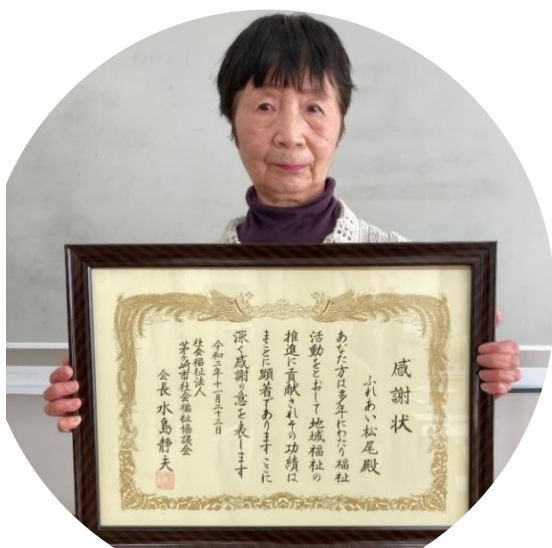 感謝状
ふれあい松尾殿
あなた方は多年にわたり福祉
活動をとおして地域福祉の
推進に貢献されその功績は
まことに顕著でありますここに
深く感謝の意を表します
令和三年十一月二十三日
社会福祉法人
茅ヶ崎市社会福祉協議会
会長 水島静夫